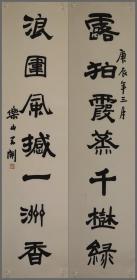 露拍霞蒸千樹緑
庚辰年三月
浪圍風撼一洲香
樂山